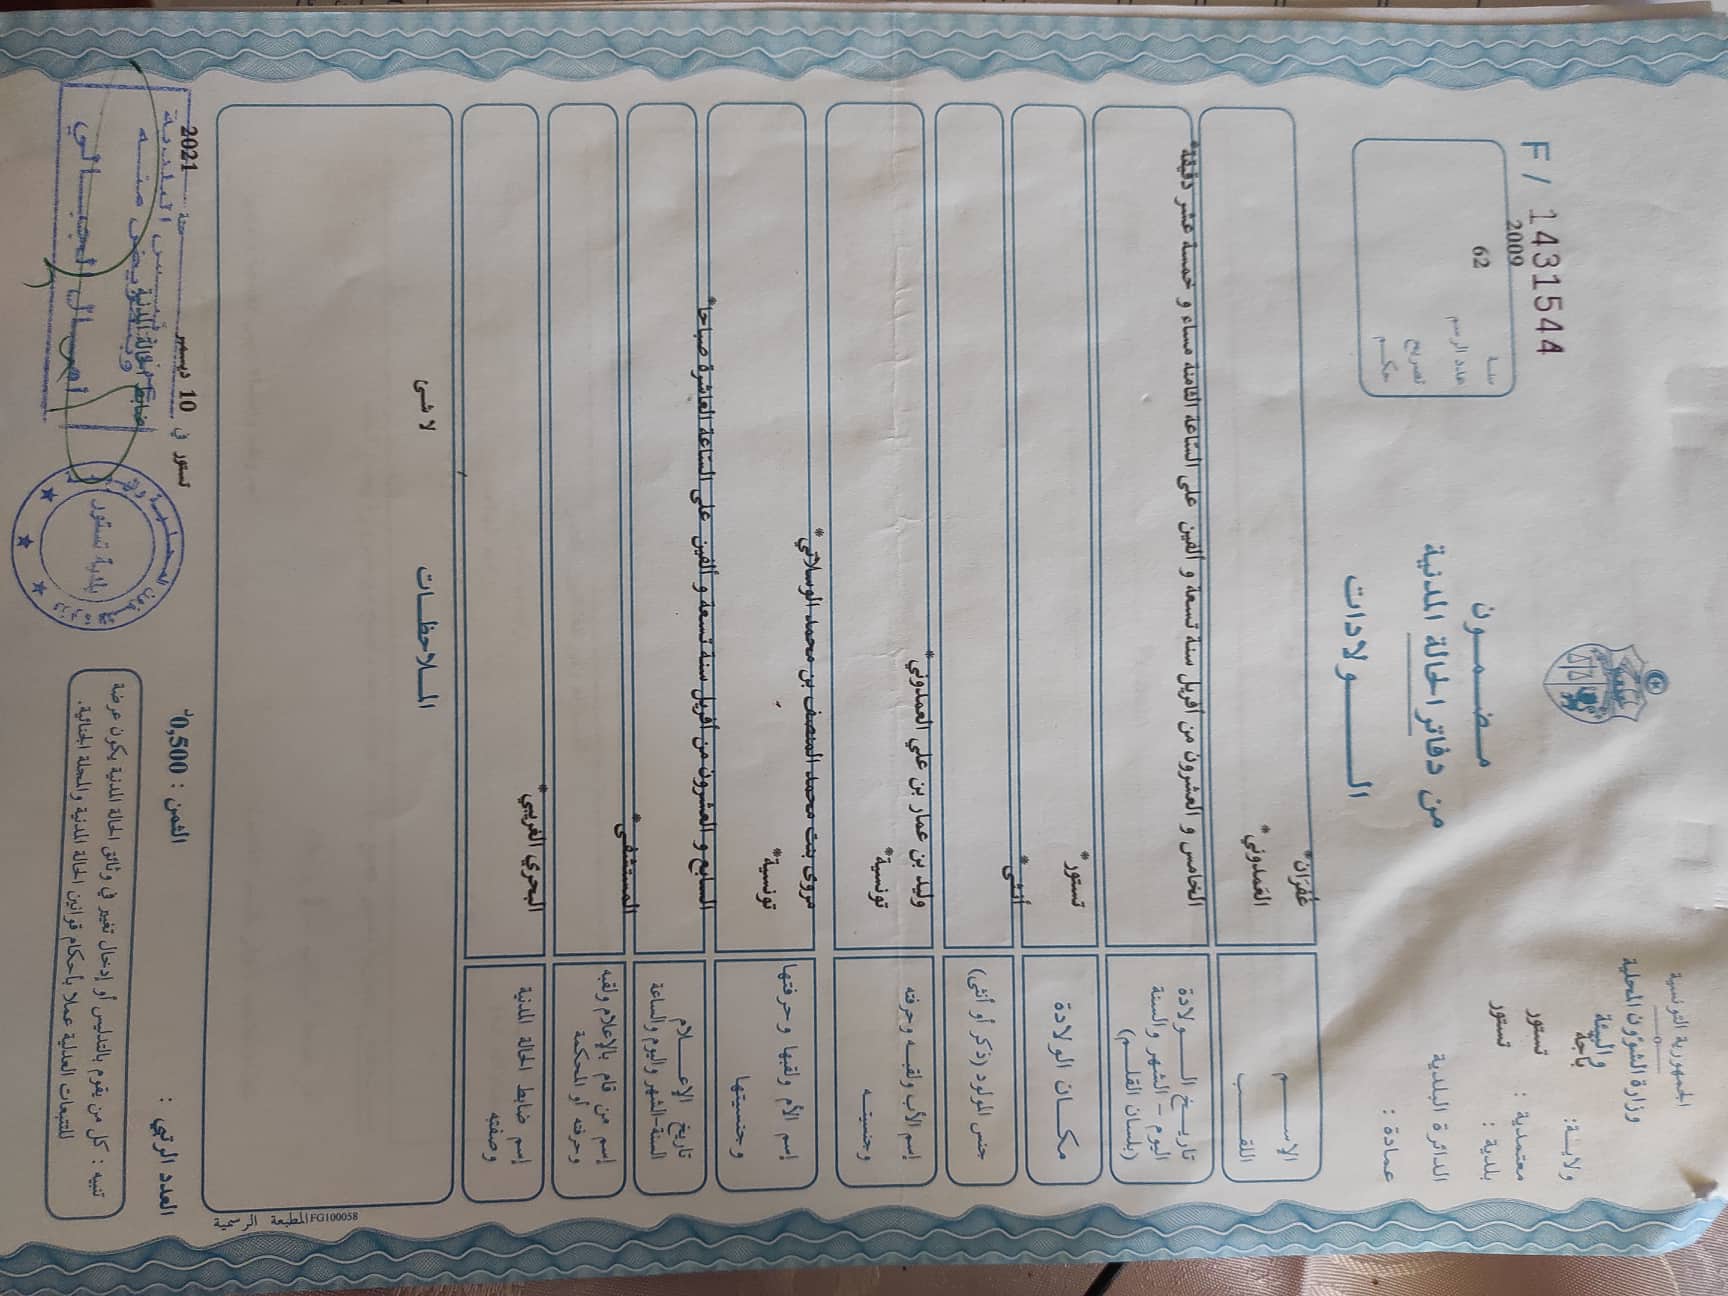 الجمهورية التونسية
وزارة الشؤون المحلية
والبيئة
ولاية: باجة
معتمدية : تستور
بلدية : تستور
الدائرة البلدية
عمادة :
F / 1431544
سنة 2009
عدد الرسم 62
تصريح
حكم
مضمون
من دفاتر الحالة المدنية
الولادات
الإسم غفران*
اللقب العمدوني*
تاريخ الولادة
اليوم - الشهر والسنة
(بلسان القلم)
الخامس و العشرون من أفريل سنة تسعة و ألفين على الساعة الثامنة مساء و خمسة عشر دقيقة*
مكان الولادة تستور*
جنس المولود (ذكر أو أنثى) أنثى*
إسم الأب ولقبه وحرفته وليد بن عمار بن علي العمدوني*
وجنسيته تونسية*
إسم الأم ولقبها وحرفتها مروى بنت محمد المنصف بن محمد الوسلاتي*
وجنسيتها تونسية*
تاريخ الإعلام
السنة-الشهر واليوم والساعة
السابع و العشرون من أفريل سنة تسعة و ألفين على الساعة العاشرة صباحا*
إسم من قام بالإعلام ولقبه
وحرفته أو المحكمة
المستشفى*
إسم ضابط الحالة المدنية
وصفته
البحري الغريبي*
الملاحظات
لا شئ
المطبعة الرسمية FG100058
العدد الرتبي :
الثمن : 0,500د
تستور في 10 ديسمبر سنة 2021
ضابط الحالة المدنية
عن رئيس البلدية
وبتفويض منه
بلدية تستور
تنبيه : كل من يقوم بالتدليس أو إدخال تغيير في وثائق الحالة المدنية يكون عرضة
للتتبعات العدلية عملا بأحكام قوانين الحالة المدنية والمجلة الجنائية.